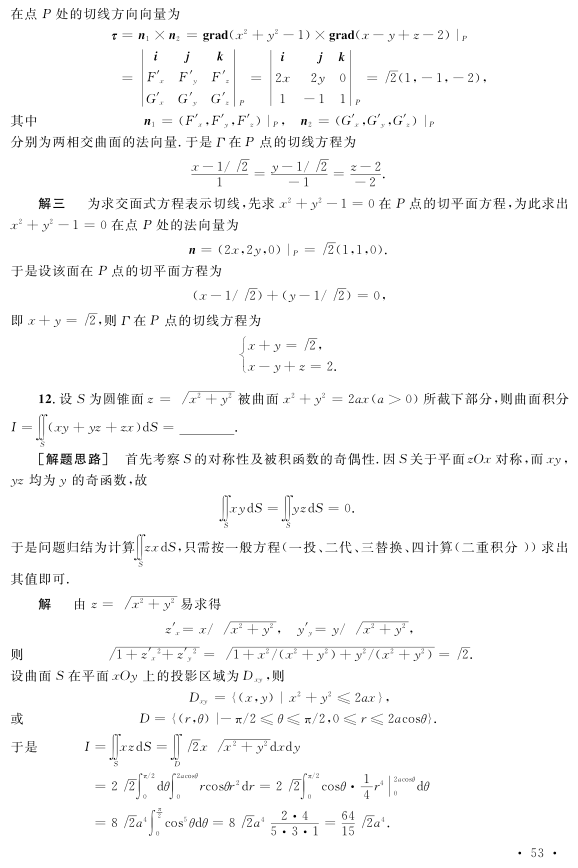 在点 P 处的切线方向向量为
τ = n₁ × n₂ = grad(x² + y² − 1) × grad(x − y + z − 2) |_P
= | i j k ; F'ₓ F'_y F'_z ; G'ₓ G'_y G'_z |_P = | i j k ; 2x 2y 0 ; 1 −1 1 |_P = √2(1, −1, −2),
其中 n₁ = (F'ₓ, F'_y, F'_z) |_P, n₂ = (G'ₓ, G'_y, G'_z) |_P
分别为两相交曲面的法向量. 于是 Γ 在 P 点的切线方程为
(x − 1/√2)/1 = (y − 1/√2)/(−1) = (z − 2)/(−2).
解三 为求交面式方程表示切线, 先求 x² + y² − 1 = 0 在 P 点的切平面方程, 为此求出
x² + y² − 1 = 0 在点 P 处的法向量为
n = (2x, 2y, 0) |_P = √2(1, 1, 0).
于是设该面在 P 点的切平面方程为
(x − 1/√2) + (y − 1/√2) = 0,
即 x + y = √2, 则 Γ 在 P 点的切线方程为
{ x + y = √2,
x − y + z = 2.
12. 设 S 为圆锥面 z = √(x² + y²) 被曲面 x² + y² = 2ax (a > 0) 所截下部分, 则曲面积分
I = ∬_S (xy + yz + zx)dS = ________.
[解题思路] 首先考察 S 的对称性及被积函数的奇偶性. 因 S 关于平面 zOx 对称, 而 xy,
yz 均为 y 的奇函数, 故
∬_S xydS = ∬_S yzdS = 0.
于是问题归结为计算∬_S zxdS, 只需按一般方程(一投、二代、三替换、四计算(二重积分))求出
其值即可.
解 由 z = √(x² + y²) 易求得
z'ₓ = x/√(x² + y²), y'_y = y/√(x² + y²),
则 √(1 + z'ₓ² + z'_y²) = √(1 + x²/(x² + y²) + y²/(x² + y²)) = √2.
设曲面 S 在平面 xOy 上的投影区域为 D_xy, 则
D_xy = {(x, y) | x² + y² ≤ 2ax},
或 D = {(r, θ) | −π/2 ≤ θ ≤ π/2, 0 ≤ r ≤ 2acosθ}.
于是 I = ∬_S xzdS = ∬_D √2x √(x² + y²)dxdy
= 2√2∫₀^{π/2} dθ∫₀^{2acosθ} rcosθr²dr = 2√2∫₀^{π/2} cosθ · (1/4)r⁴ |₀^{2acosθ} dθ
= 8√2a⁴∫₀^{π/2} cos⁵θdθ = 8√2a⁴ (2·4)/(5·3·1) = (64/15)√2a⁴.
· 53 ·